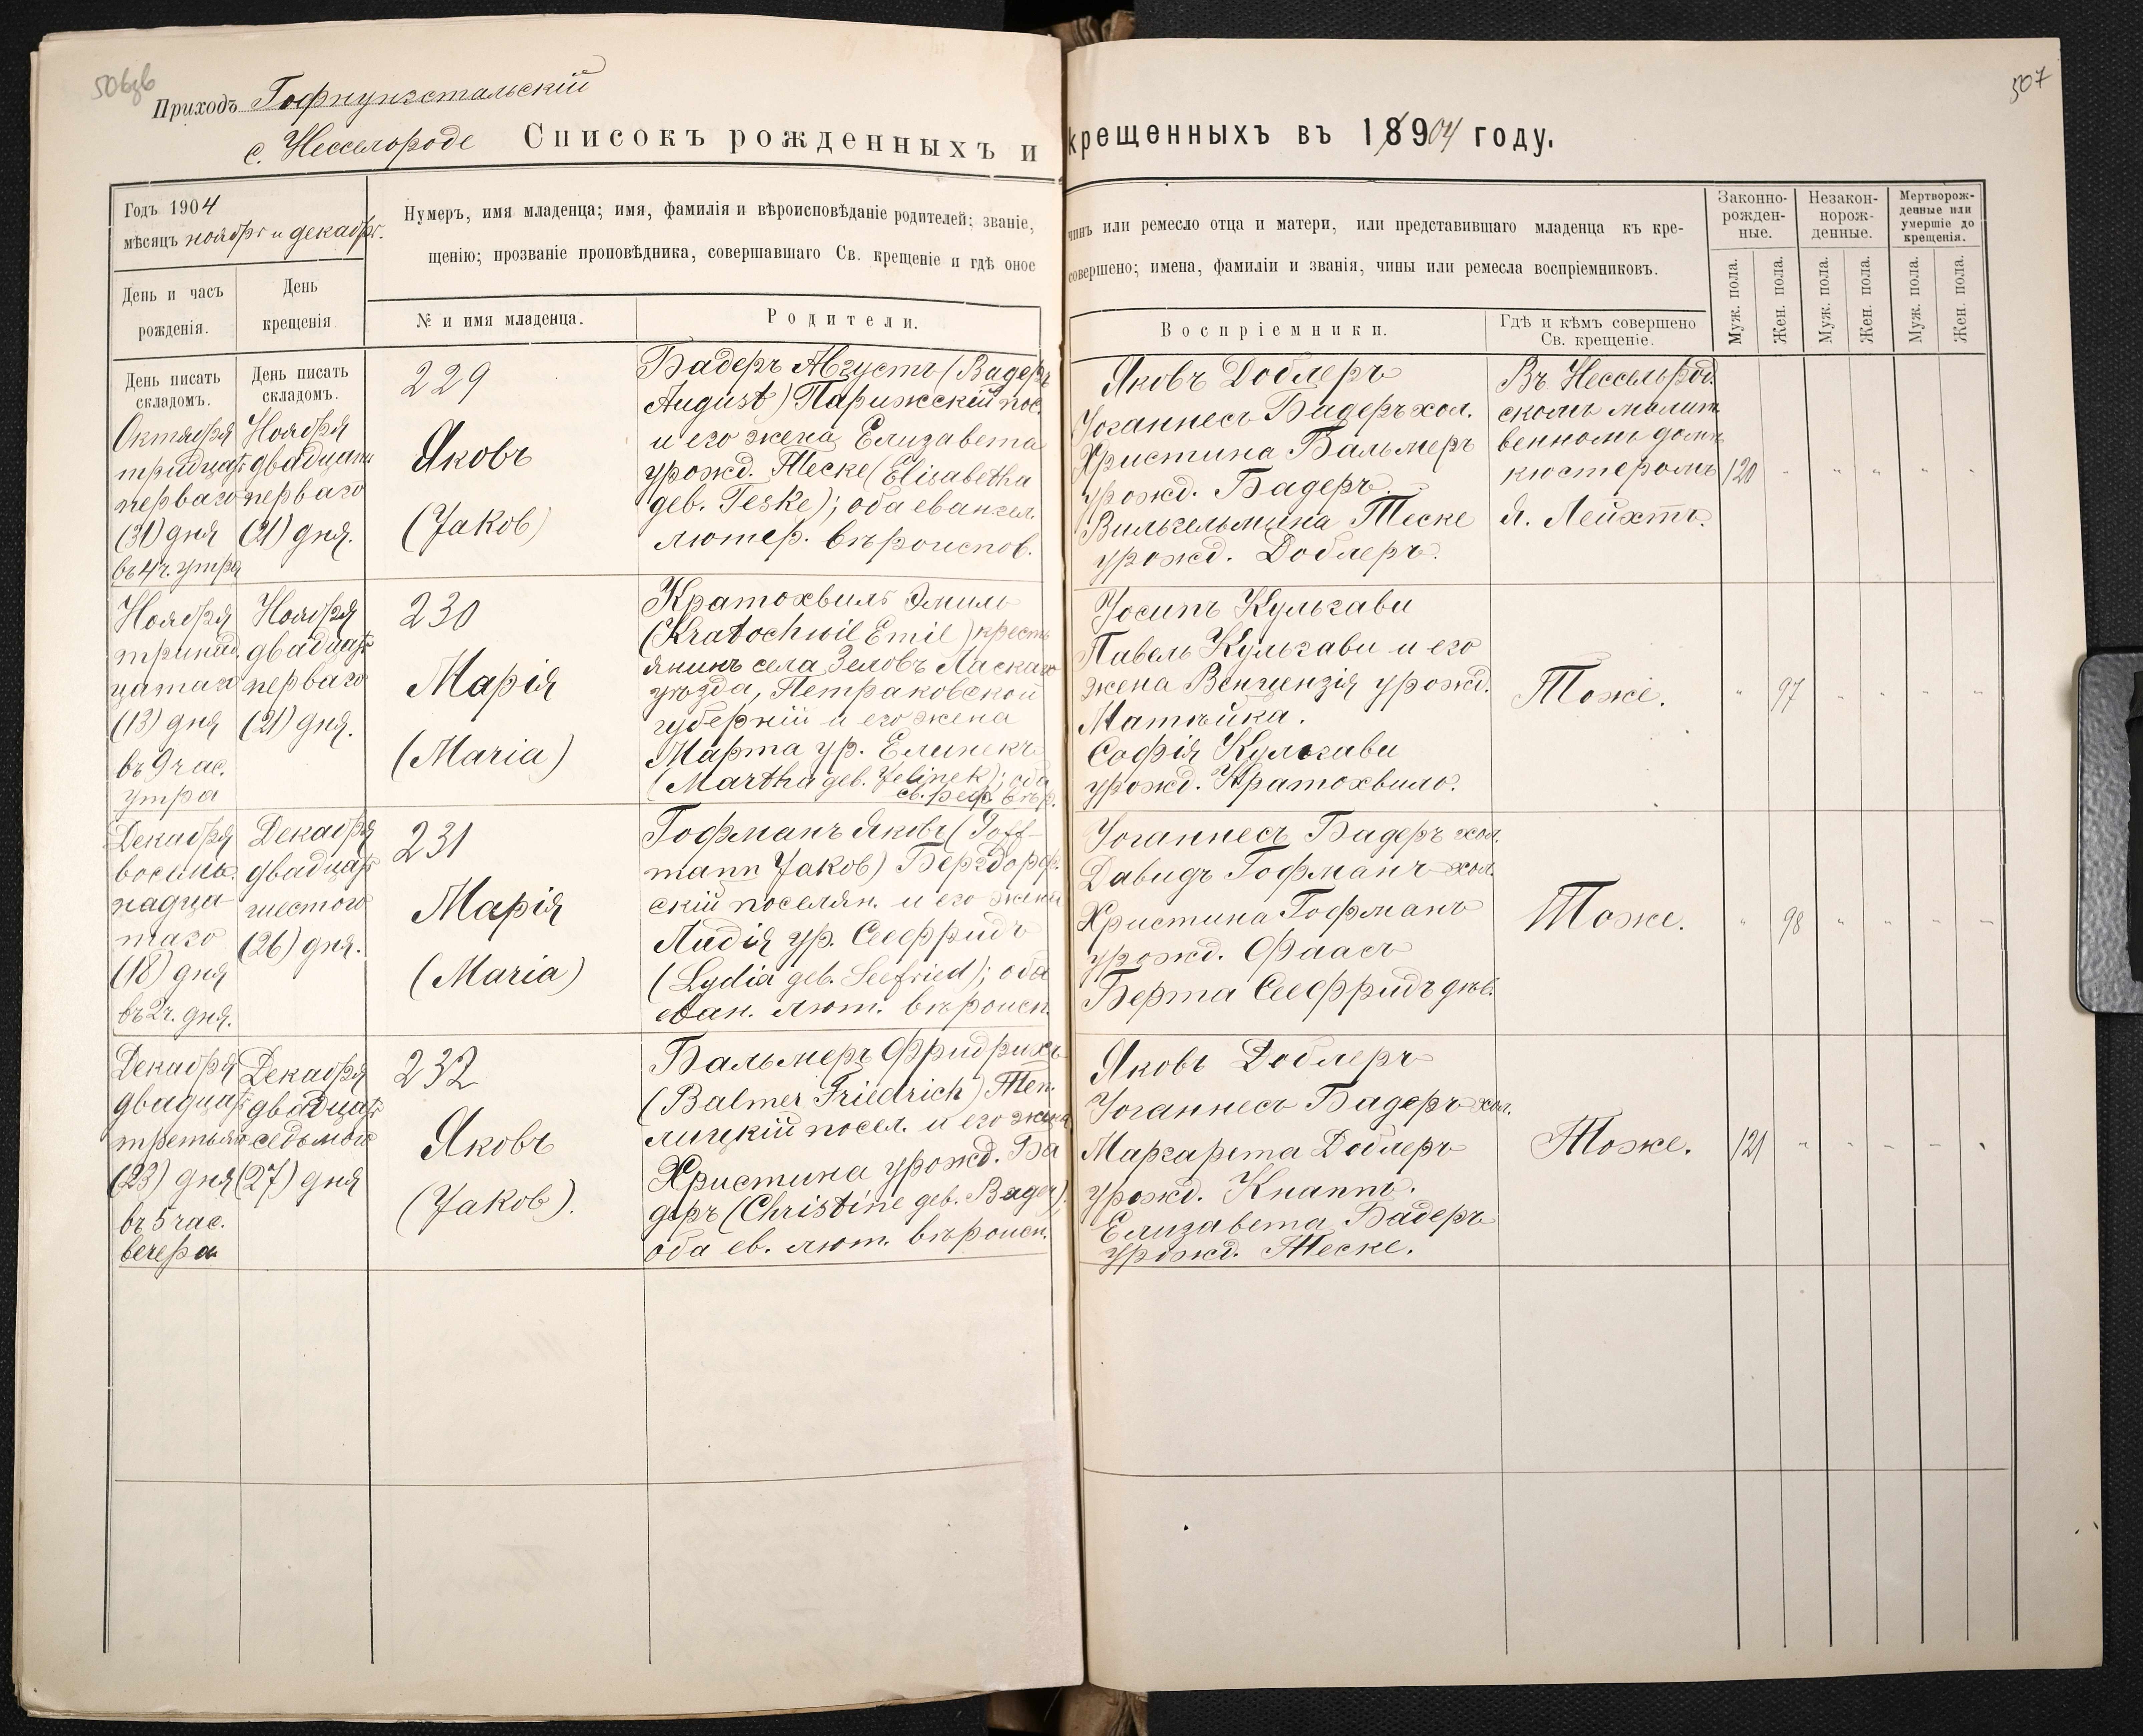 506 зв
Приходъ Гофнунгстальскій
с. Нессельроде
Списокъ рожденныхъ и
Годъ 1904
мѣсяцъ ноябрь и декабрь.
Нумеръ, имя младенца; имя, фамилія и вѣроисповѣданіе родителей; званіе,
щенію; прозваніе проповѣдника, совершавшаго Св. крещеніе и гдѣ оное
День и часъ
рожденія.
День
крещенія
№ и имя младенца.
Родители.
День писать
складомъ.
Октября
тридцать
перваго
(31) дня
въ 4 ч. утра
День писать
складомъ.
Ноября
двадцать
перваго
(21) дня.
229
Яковъ
(Jakob)
Бадеръ Августъ (Bader
August) Парижскій пос.
и его жена Елизавета
урожд. Теске (Elisabetha
geb. Teske); оба евангел.
лютер. вѣроиспов.
Ноября
тринад.
цатаго
(13) дня
въ 9 час.
утра
Ноября
двадцать
перваго
(21) дня.
230
Марія
(Maria)
Кратохвиль Эмиль
(Kratochwil Emil) кресть
янинъ села Зеловъ Ласкаго
уѣзда, Петраковской
губерніи и его жена
Марта ур. Елинекъ
(Martha geb. Jelinek); оба
ев. реф. вѣр.
Декабря
восемь
надца
таго
(18) дня
въ 2 ч. дня.
Декабря
двадцать
шестого
(26) дня.
231
Марія
(Maria)
Гофманъ Яковъ (Hoff-
mann Jakob) Бергдорф.
скій поселян. и его жена
Лидія ур. Сеефридъ
(Lydia geb. Seefried); оба
еван. лют. вѣроисп.
Декабря
двадцать
третьяго
(23) дня
въ 5 час.
вечера
Декабря
двадцать
седьмого
(27) дня
232
Яковъ
(Jakob).
Бальмеръ Фридрихъ
(Balmer Friedrich) Теп
лицкій посел. и его жена
Христина урожд. Ба
деръ (Christine geb. Bader);
оба ев. лют. вѣроисп.
507
крещенныхъ въ 18904 году.
чинъ или ремесло отца и матери, или представившаго младенца къ кре-
совершено; имена, фамиліи и званія, чины или ремесла воспріемниковъ.
Законно-
рожден-
ные.
Незакон-
норож-
денные.
Мертворож-
денные или
умершіе до
крещенія.
Воспріемники.
Гдѣ и кѣмъ совершено
Св. крещеніе.
Муж. пола.
Жен. пола.
Муж. пола.
Жен. пола.
Муж. пола.
Жен. пола.
Яковъ Доблеръ
Іоганнесъ Бадеръ хол.
Христина Бальмеръ
урожд. Бадеръ.
Вильгельмина Теске
урожд. Доблеръ.
Въ Нессельрод.
скомъ молит
венномъ домѣ
кюстеромъ
Я. Лейхтъ.
120
Іосипъ Кульгави
Павелъ Кульгави и его
жена Венцензія урожд.
Матѣйка.
Софія Кульгави
урожд. Кратохвиль.
Тоже.
97
Іоганнесъ Бадеръ хол.
Давидъ Гофманъ хол.
Христина Гофманъ
урожд. Фаасъ
Берта Сеефридъ дѣв.
Тоже.
98
Яковъ Доблеръ
Іоганнесъ Бадеръ хол.
Маргарета Доблеръ
урожд. Кнаппъ.
Елизавета Бадеръ
урожд. Теске.
Тоже.
121